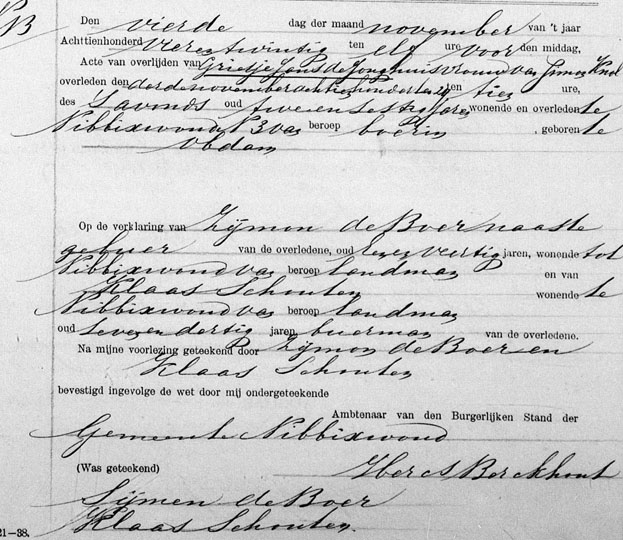 NB
Den vierde dag der maand november van 't jaar
Achttienhonderd Vierentwintig ten elf ure voor den middag,
Acte van overlijden van Grietje Jans de Jong huisvrouw van Simon Knol
overleden den derde november achttienhonderd ten tien ure,
des Savonds oud twee en sestig Jare wonende en overleden te
Nibbixwoud N 3 van beroep boerin , geboren te
Obdam
Op de verklaring van Zijmon de Boer naaste
gebuer van de overledene, oud veertig jaren, wonende tot
Nibbixwoud van beroep landman en van
Klaas Schouten wonende te
Nibbixwoud van beroep landman
oud Seven en dertig jaren buerman van de overledene.
Na mijne voorlezing geteekend door Zijmon de Boer en
Klaas Schouten
bevestigd ingevolge de wet door mij ondergeteekende
Ambtenaar van den Burgerlijken Stand der
Gemeente Nibbixwoud
(Was geteekend) Berckhout
Sijmen de Boer
Klaas Schouten.
21—38.